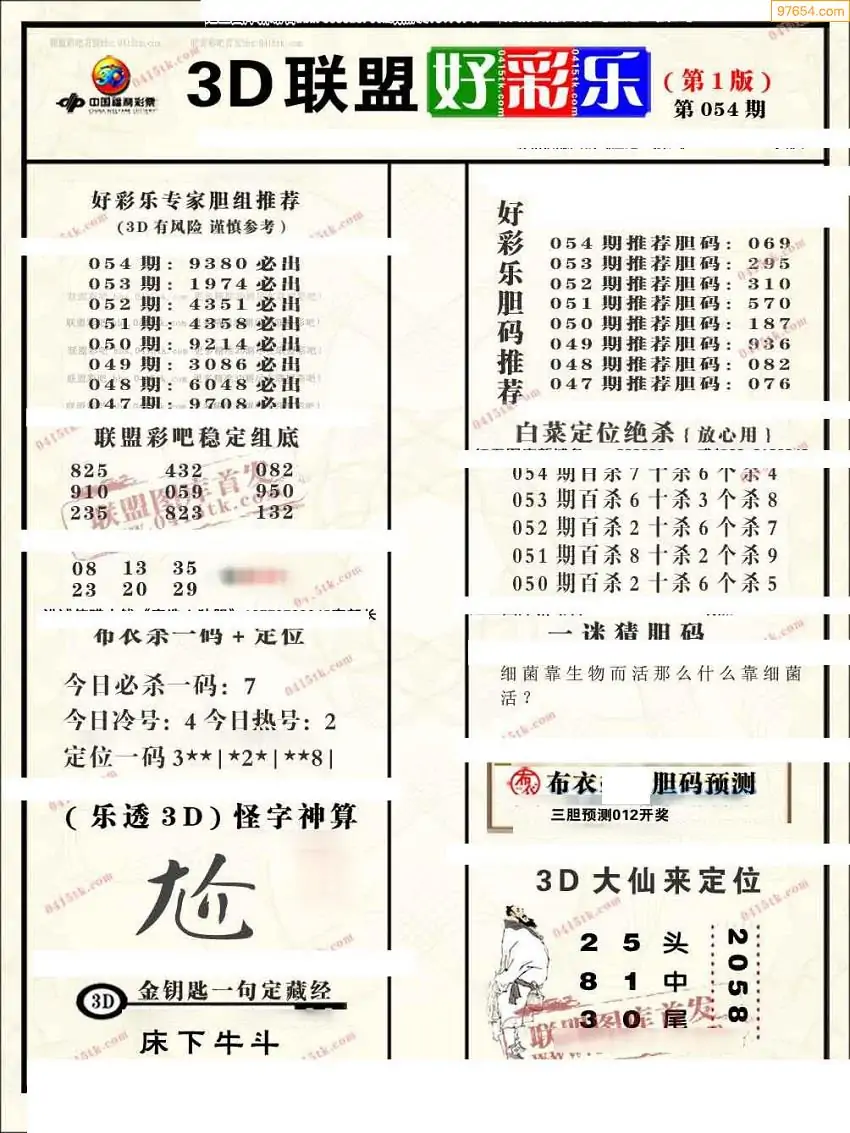 97654.com
中国福利彩票
CHINA WELFARE LOTTERY
3D联盟好彩乐
0415tk.com
0415tk.com
(第1版)
第054期
好彩乐专家胆组推荐
(3D有风险 谨慎参考)
054期: 9380必出
053期: 1974必出
052期: 4351必出
051期: 4358必出
050期: 9214必出
049期: 3086必出
048期: 6048必出
047期: 9708必出
联盟彩吧稳定组底
825 432 082
910 059 950
235 823 132
联盟图库首发
08 13 35
23 20 29
布衣杀一码+定位
今日必杀一码: 7
今日冷号: 4 今日热号: 2
定位一码 3**|*2*|**8|
(乐透3D)怪字神算
尬
3D 金钥匙一句定藏经
床下牛斗
好彩乐胆码推荐
054期推荐胆码: 069
053期推荐胆码: 295
052期推荐胆码: 310
051期推荐胆码: 570
050期推荐胆码: 187
049期推荐胆码: 936
048期推荐胆码: 082
047期推荐胆码: 076
白菜定位绝杀{放心用}
054期百杀7十杀6个杀4
053期百杀6十杀3个杀8
052期百杀2十杀6个杀7
051期百杀8十杀2个杀9
050期百杀2十杀6个杀5
一迷猜胆码
细菌靠生物而活那么什么靠细菌
活?
布衣 胆码预测
三胆预测012开奖
3D大仙来定位
2 5 头
8 1 中
3 0 尾
2058
联盟图库首发
0415tk.com